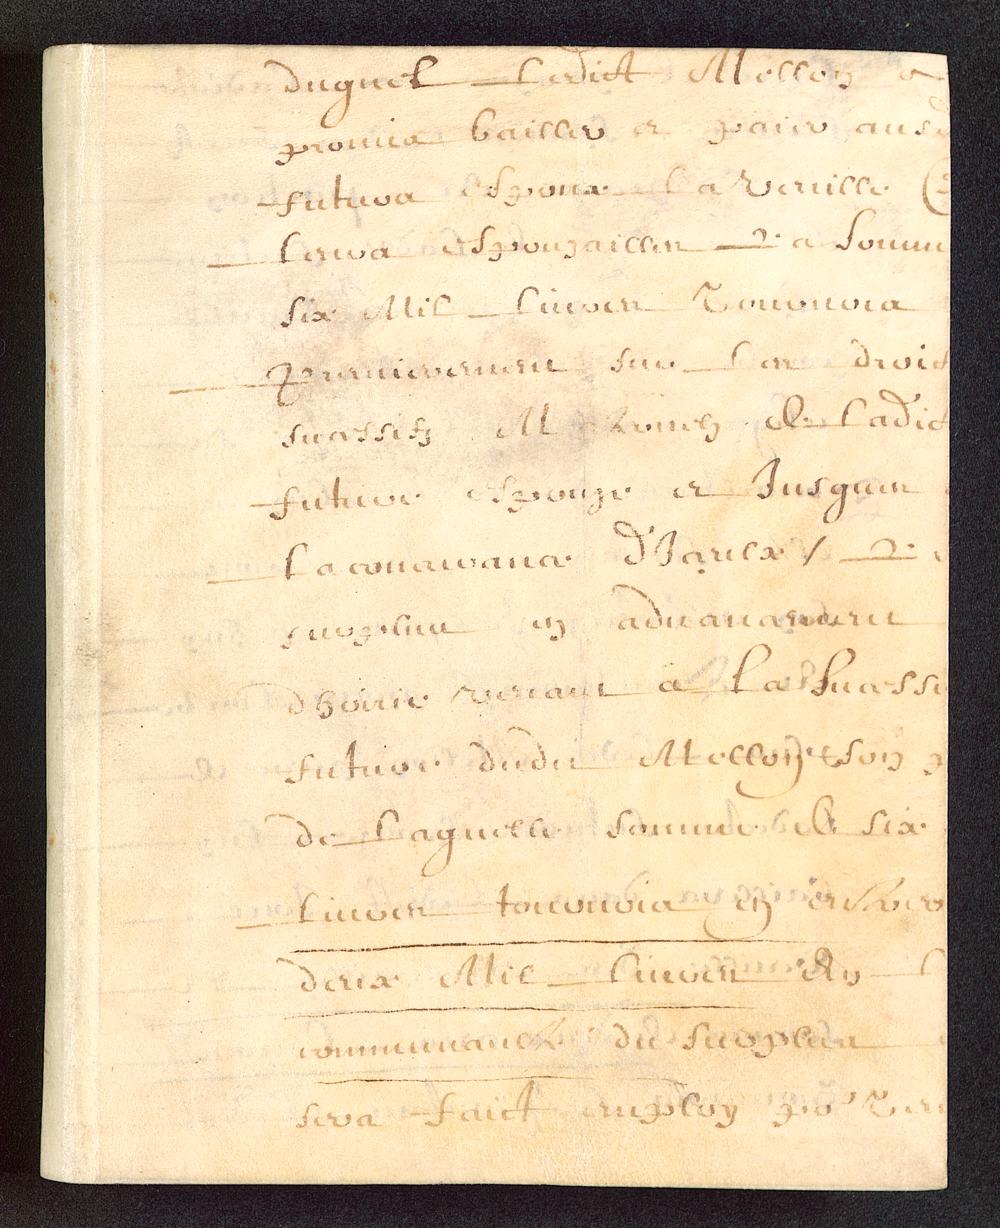 duquel Ledict Mellon a
promis bailler et paier ausd
futurs Espoux La Veuille
leurs Espouzailles La Somme
six Mil Livres Tournois
Premierement sur les droict
successifz de Ladict
future Espouze et Jusques
La concurrance d'Iceux / Le
surplus en aduancement
dhoirie venant à La Successi
future dudit Mellon et son
de Laquelle somme de six
Livres tournois en
deux Mil Livres En
communaulté du surplus
sera faict employ po